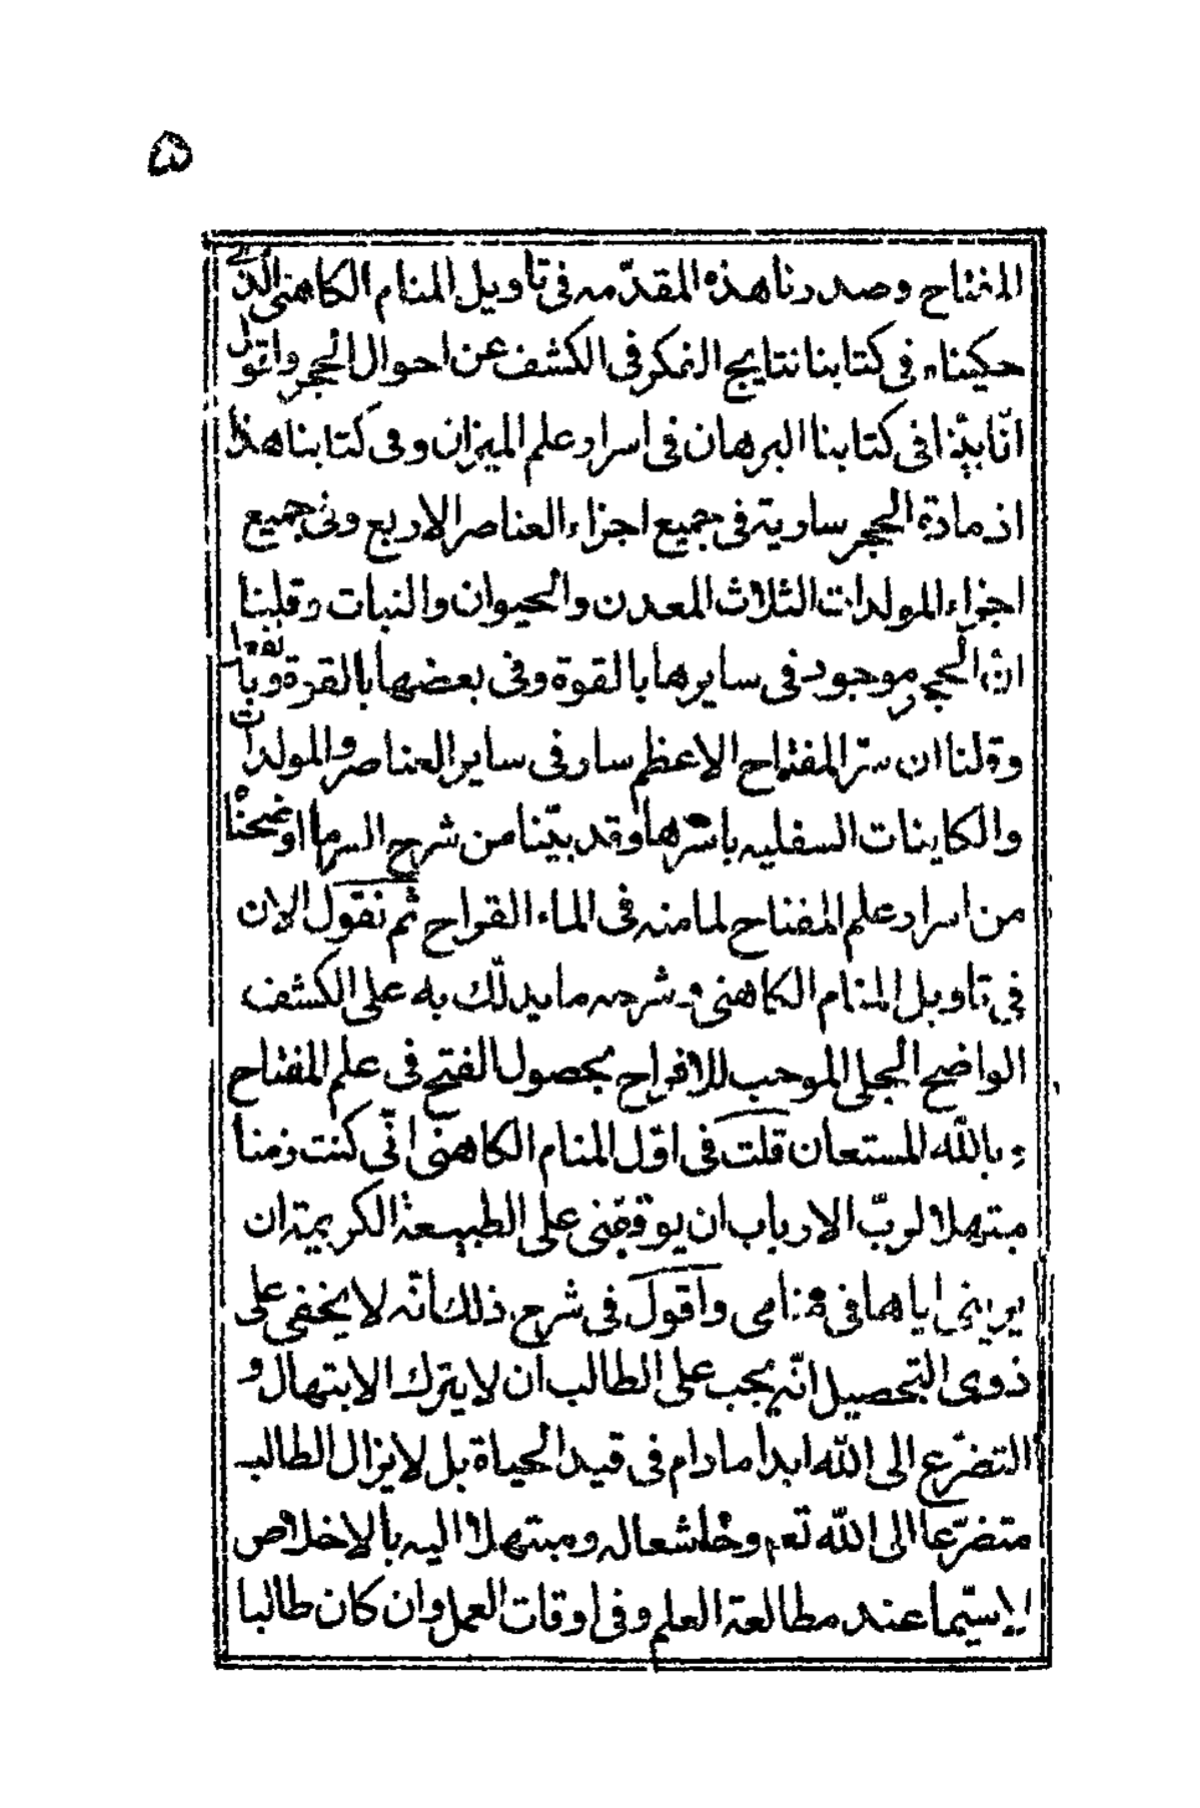 ۵
المفتاح وصدرنا هذه المقدّمه فى تأويل المنام الكاهنى الذى
حكيناه فى كتابنا نتايج الفكر فى الكشف عن احوال الحجر واقول
انّا بيّنا فى كتابنا البرهان فى اسرار علم الميزان وفى كتابنا هذا
ان مادة الحجر سارية فى جميع اجزاء العناصر الاربع وفى جميع
اجزاء المولدات الثلاث المعدن والحيوان والنبات وقلنا
ان الحجر موجود فى سايرها بالقوة وفى بعضها بالقوة وبالفعل
وقلنا ان سرّ المفتاح الاعظم سار فى ساير العناصر والمولدات
والكاينات السفليه باسرها وقد بيّنا من شرح السر ما اوضحناه
من اسرار علم المفتاح لما منه فى الماء القراح ثم نقول الان
فى تاويل المنام الكاهنى وشرحه ما يدلّك به على الكشف
الواضح الجلى الموجب للافراح بحصول الفتح فى علم المفتاح
وبالله المستعان قلت فى اوّل المنام الكاهنى انّى كنت زمنا
مبتهلا لربّ الارباب ان يوقفنى على الطبيعة الكريمة ان
يرينى اياها فى منامى واقول فى شرح ذلك أنّه لا يخفى على
ذوى التحصيل انّه يجب على الطالب ان لا يترك الابتهال و
التضرّع الى الله ابدا ما دام فى قيد الحياة بل لا يزال الطالب
متضرّعا الى الله تعم وخاشعا له ومبتهلا اليه بالاخلاص
لاسيّما عند مطالعة العلم وفى اوقات العمل وان كان طالبا